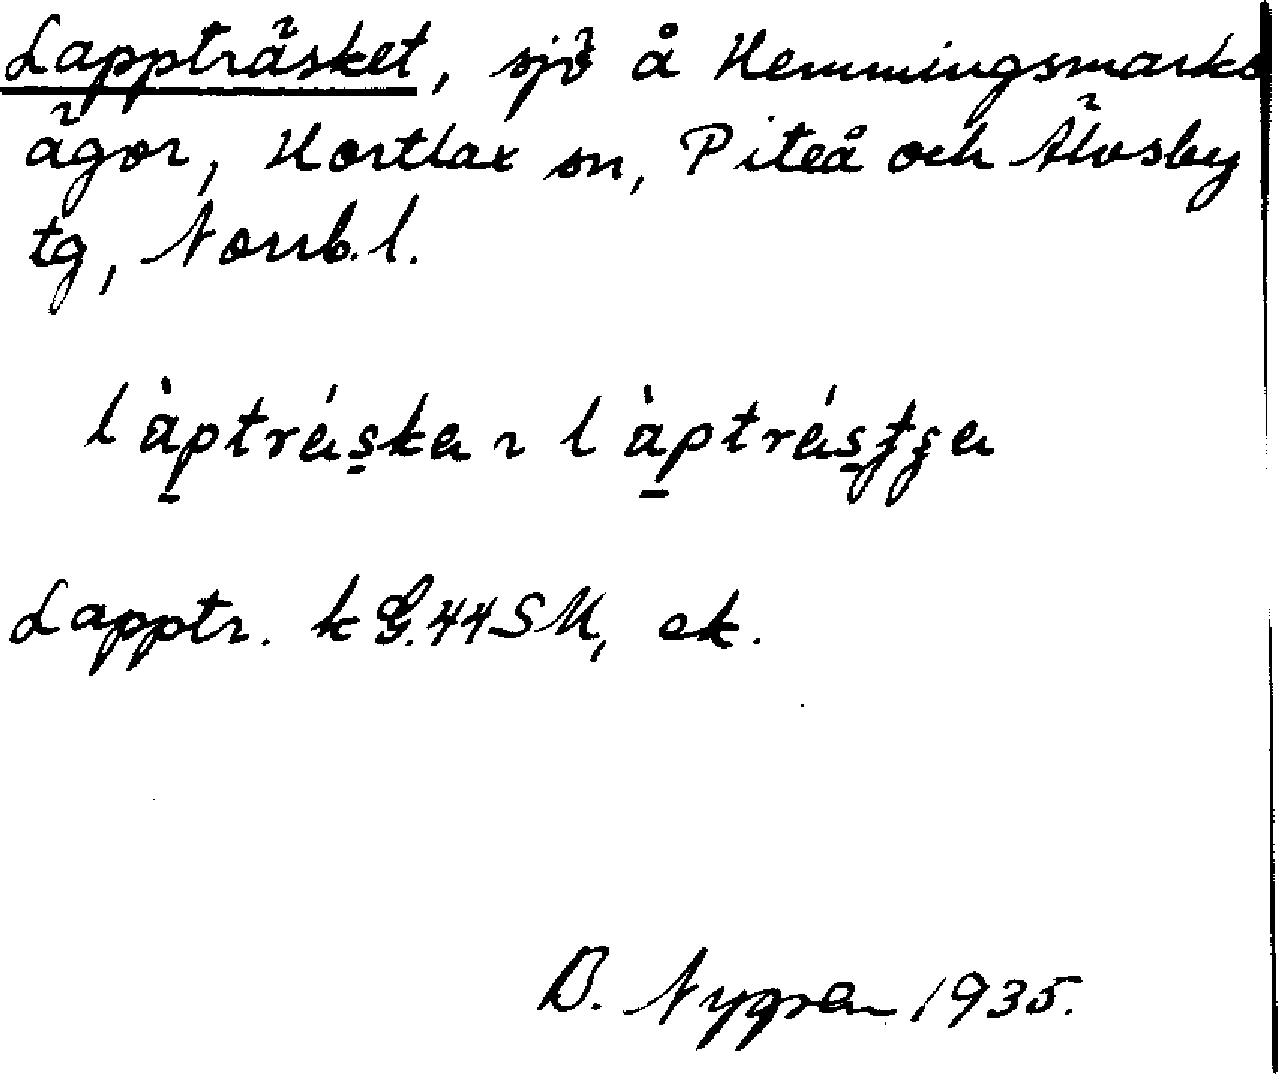 Lappträsket, sjö å Hemmingsmarks
ägor, Hortlax sn, Piteå och Älvsby
tg, Norrb. l.
l àptráska ~ l àptrástʃa
Lapptr. k G.44SM, ek.
B. Nygren 1935.